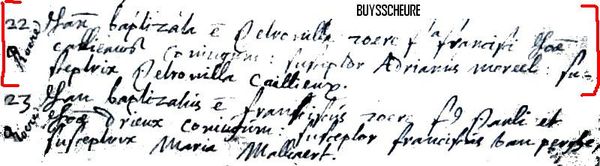 BUYSSCHEURE
22 Jan baptizata e Petronilla roere f^a francisi Joae
Roere callieaus coniugum: susceptor Adrianus mereel: su-
sceptrix Petronilla Caillieux.
23 Jan baptizatus e franciscus roere f^s Pauli et
Roere Joae Drieux coniugum: susceptor franciscus van
susceptrix Maria Malliaert.